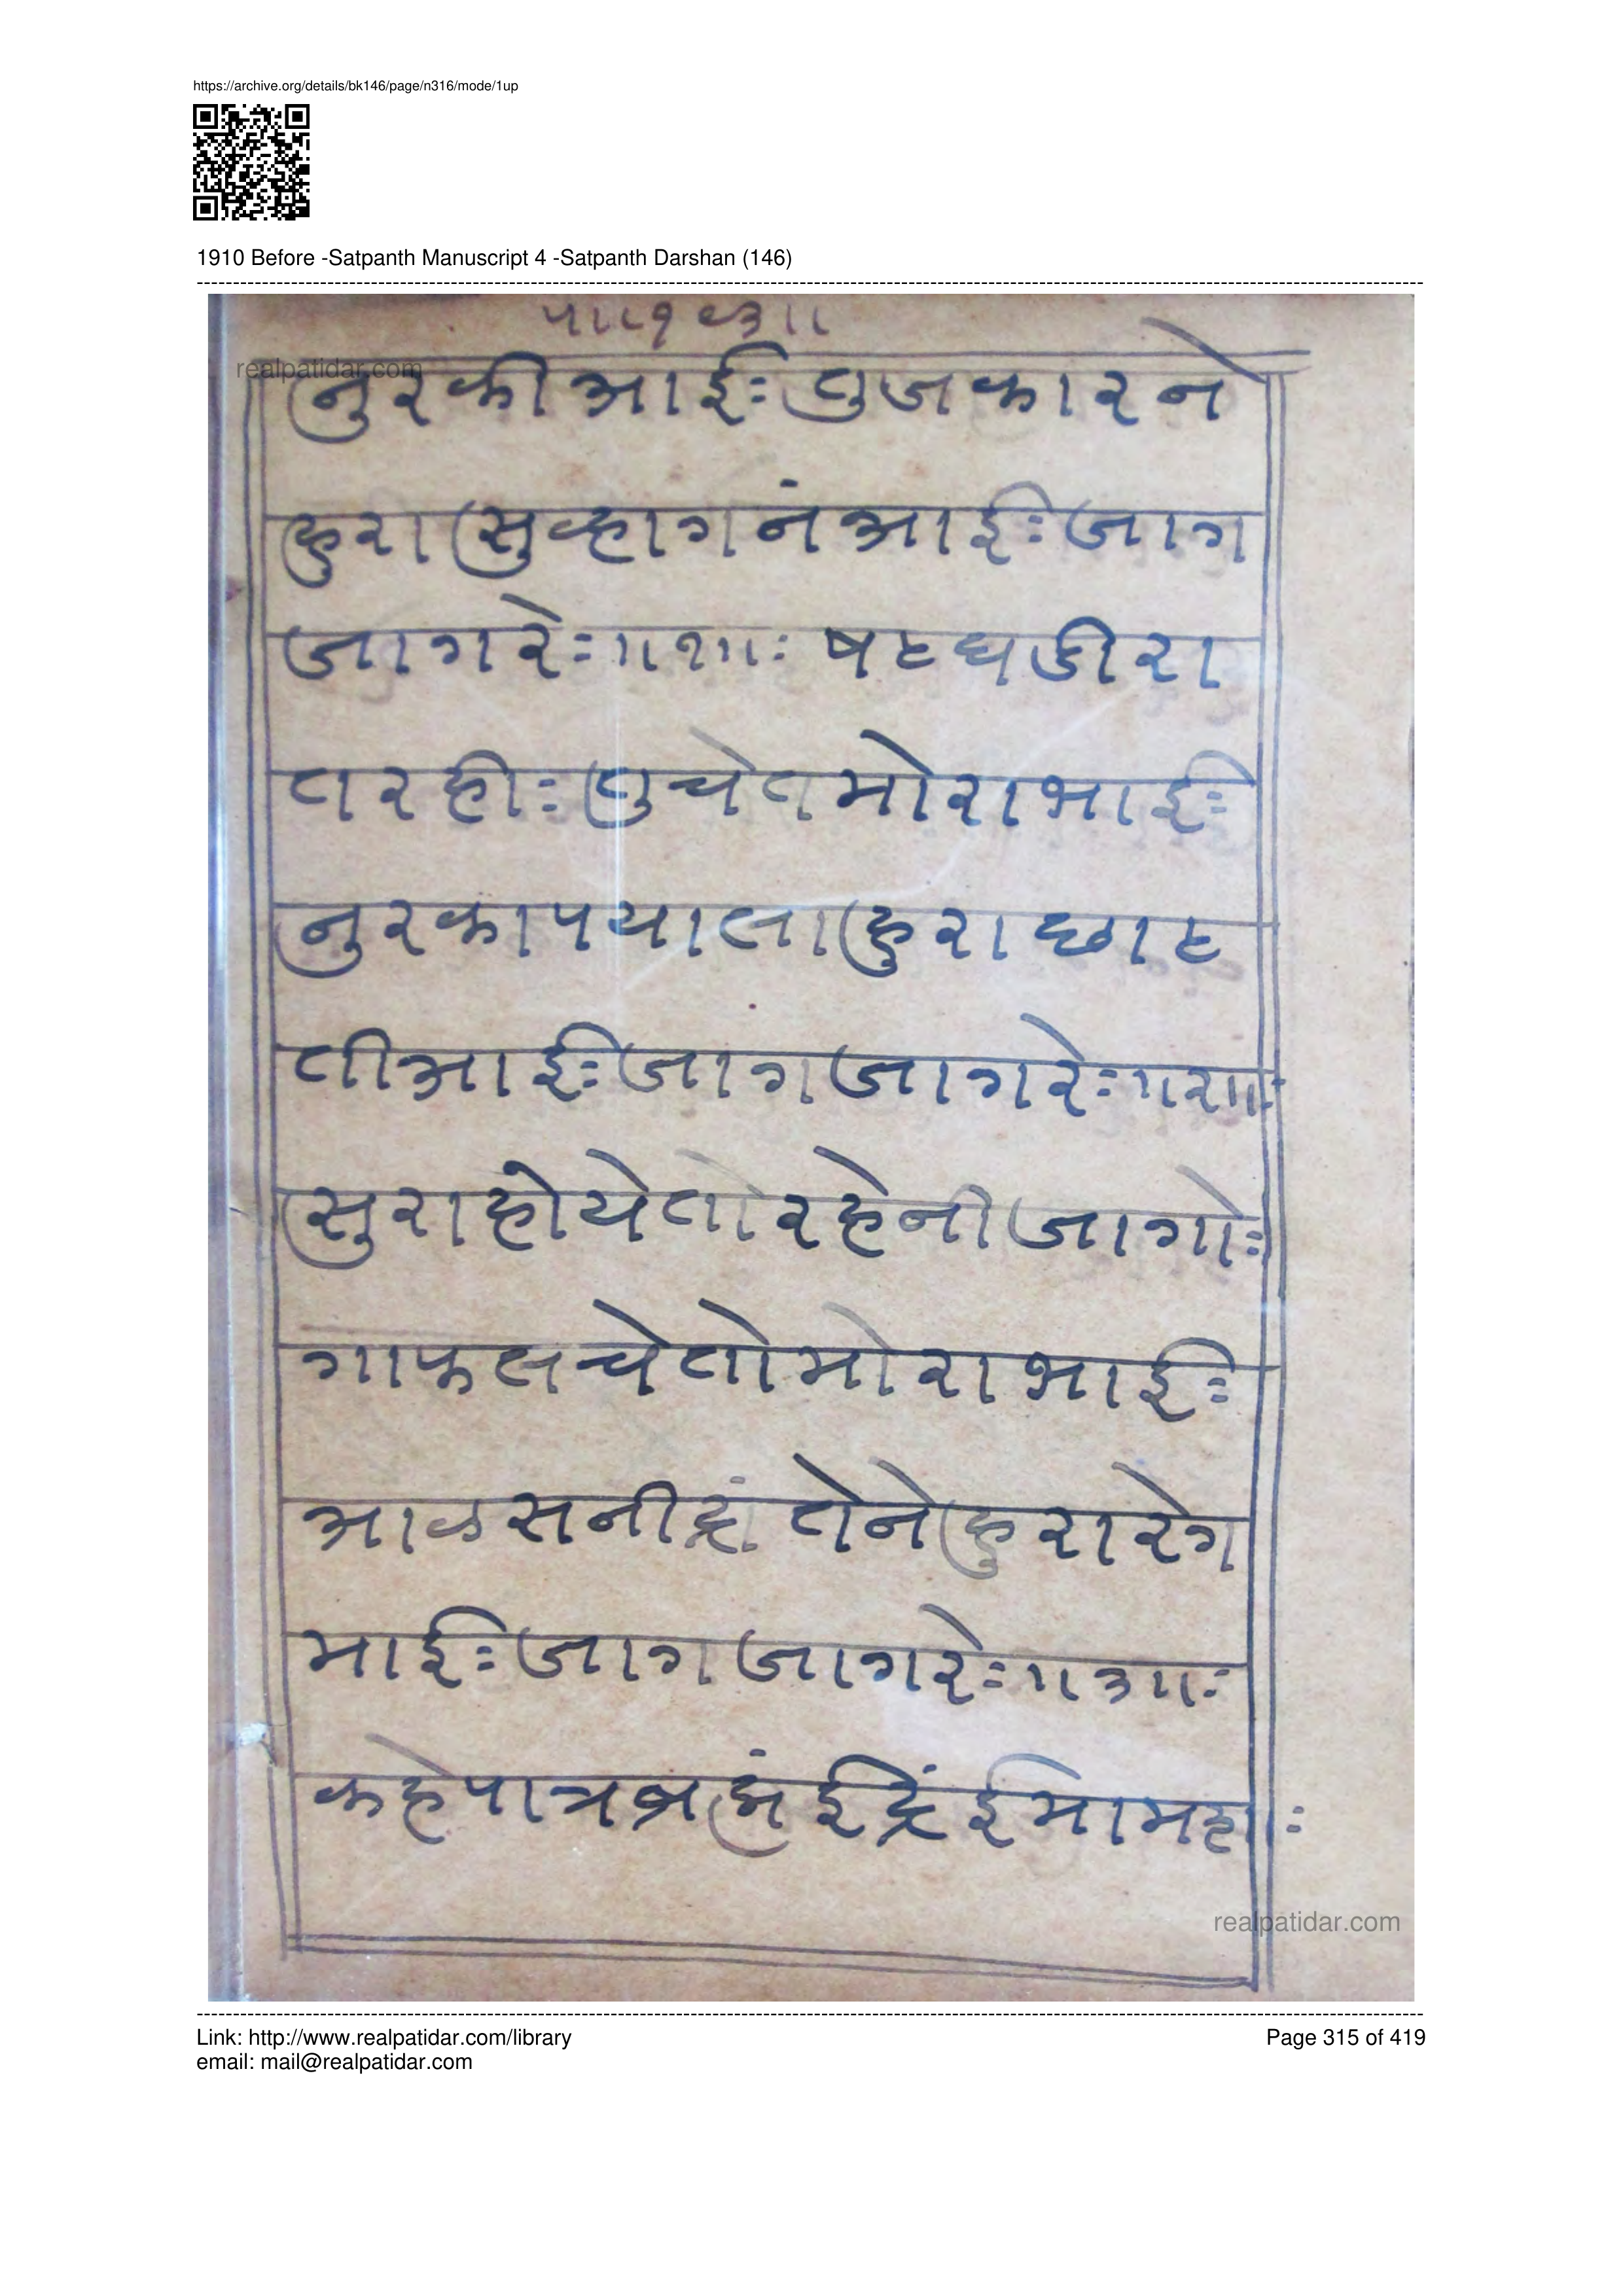 https://archive.org/details/bk146/page/n316/mode/1up
1910 Before -Satpanth Manuscript 4 -Satpanth Darshan (146)
realpatidar.com
नुरकीआईः तुजकारने
हुरासुव्हागनंआईः जाग
जागरेः ॥१॥ः षटघडीरा
तरहीः तुचेतमोराभाईः
नुरकापयालाहुराछाट
तीआईः जागजागरेः ॥२॥ः
सुराहोयेतोरहेनीजागोः
गाफलचेतोमोराभाईः
आळसनीद्रां तेनेहुरारेग
माईः जागजागरेः ॥३॥ः
कहेपात्रब्रह्मंईंद्रईमामशाः
realpatidar.com
Link: http://www.realpatidar.com/library
Page 315 of 419
email: mail@realpatidar.com